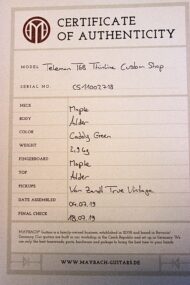 CERTIFICATE
OF AUTHENTICITY
MODEL Teleman T68 Thinline Custom Shop
SERIAL NO. CS-11002718
NECK
Maple
BODY
Alder
COLOR
Caddy Green
WEIGHT
2,9 kg
FINGERBOARD
Maple
TOP
Alder
PICKUPS
Van Zandt True Vintage
DATE ASSEMBLED
04.07.19
FINAL CHECK
18.07.19
MAYBACH® Guitars is a family-owned business, established in
Germany. Our guitars are built in our workshop in the Czech Republic and set up in Germany. We
use only the best tonewoods, parts, hardware and package to bring the best tone in your hands.
MAYBACH-GUITARS.DE